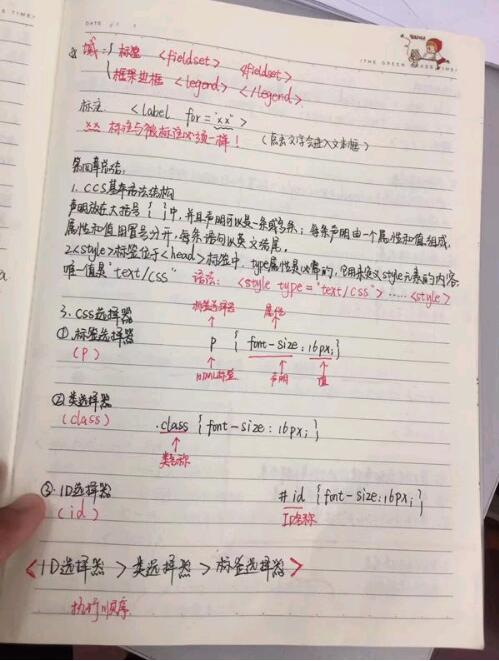 DATE
(THE GREEN
域: 标签 <fieldset> <fieldset>
框架边框 <legend> </legend>
标注 <label for="xx">
xx 标注与被标注必须一样! (点击文字会进入文本框)
第四章总结:
1. CCS基本语法结构
声明放在大括号{ }中,并且声明可以是一条或多条;每条声明由一个属性和值组成,
属性和值用冒号分开,每条语句以英文结尾.
2<style>标签位于<head>标签中. type属性是必需的,它用来定义style元素的内容.
唯一值是"text/css" 语法: <style type="text/css">.....<style>
3. css选择器 标签选择器 属性
① 标签选择器 P { font-size: 16px; }
(P) HTML标签 声明 值
② 类选择器
(class) .class {font-size: 16px; }
类名称
③. ID选择器 #id {font-size: 16px; }
(id) ID名称
<ID选择器 > 类选择器 > 标签选择器>
执行顺序.